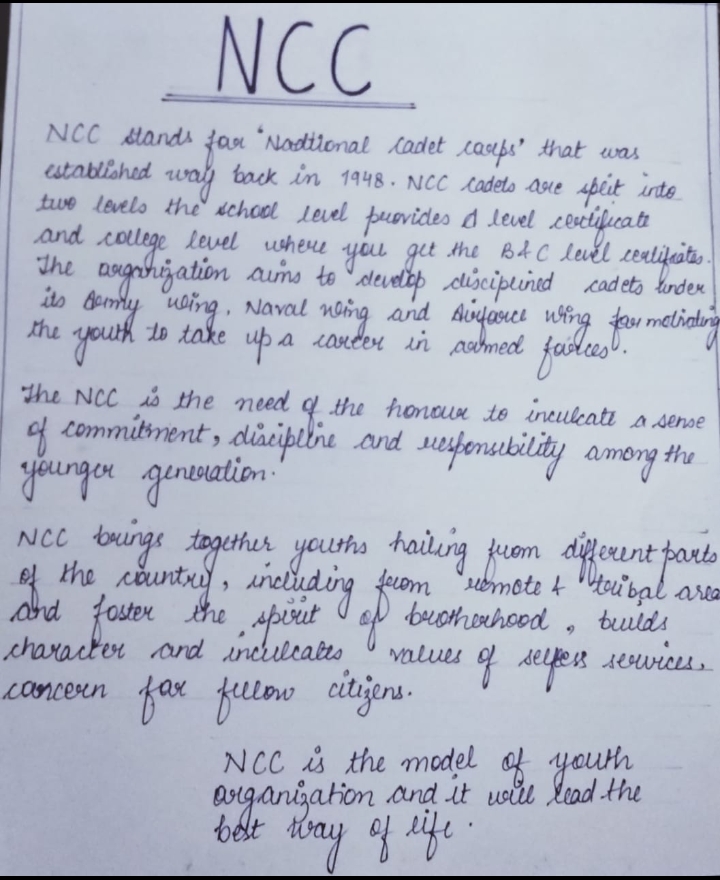 NCC
NCC stands for 'Nadtional cadet corps' that was
established way back in 1948. NCC cadets are split into
two levels the school level provides A level certificate
and college level where you get the B & C level certificates.
The organization aims to develop disciplined cadets under
its Army wing, Naval wing and Airforce wing for motivating
the youth to take up a career in armed forces.
The NCC is the need of the honour to inculcate a sense
of commitment, discipline and responsibility among the
younger generation.
NCC brings together youths hailing from different parts
of the country, including from remote & tribal area
and foster the spirit of brotherhood, builds
character and inculcates values of selfess services,
concern for fellow citizens.
NCC is the model of youth
organization and it will lead the
best way of life.